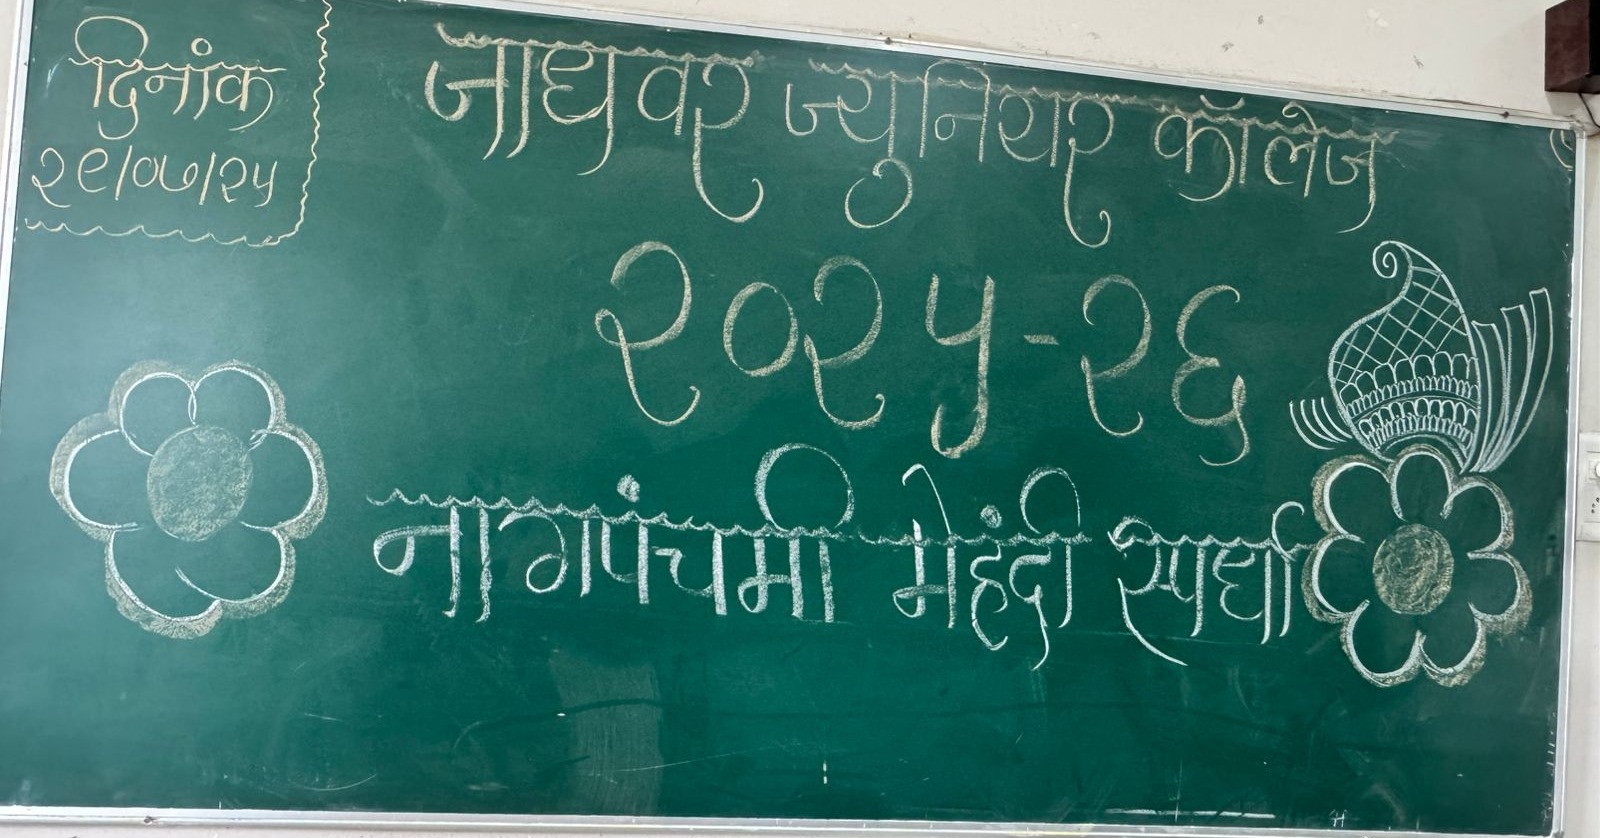 दिनांक
२९/०७/२५
जाधवर ज्युनियर कॉलेज
२०२५-२६
नागपंचमी मेहंदी स्पर्धा